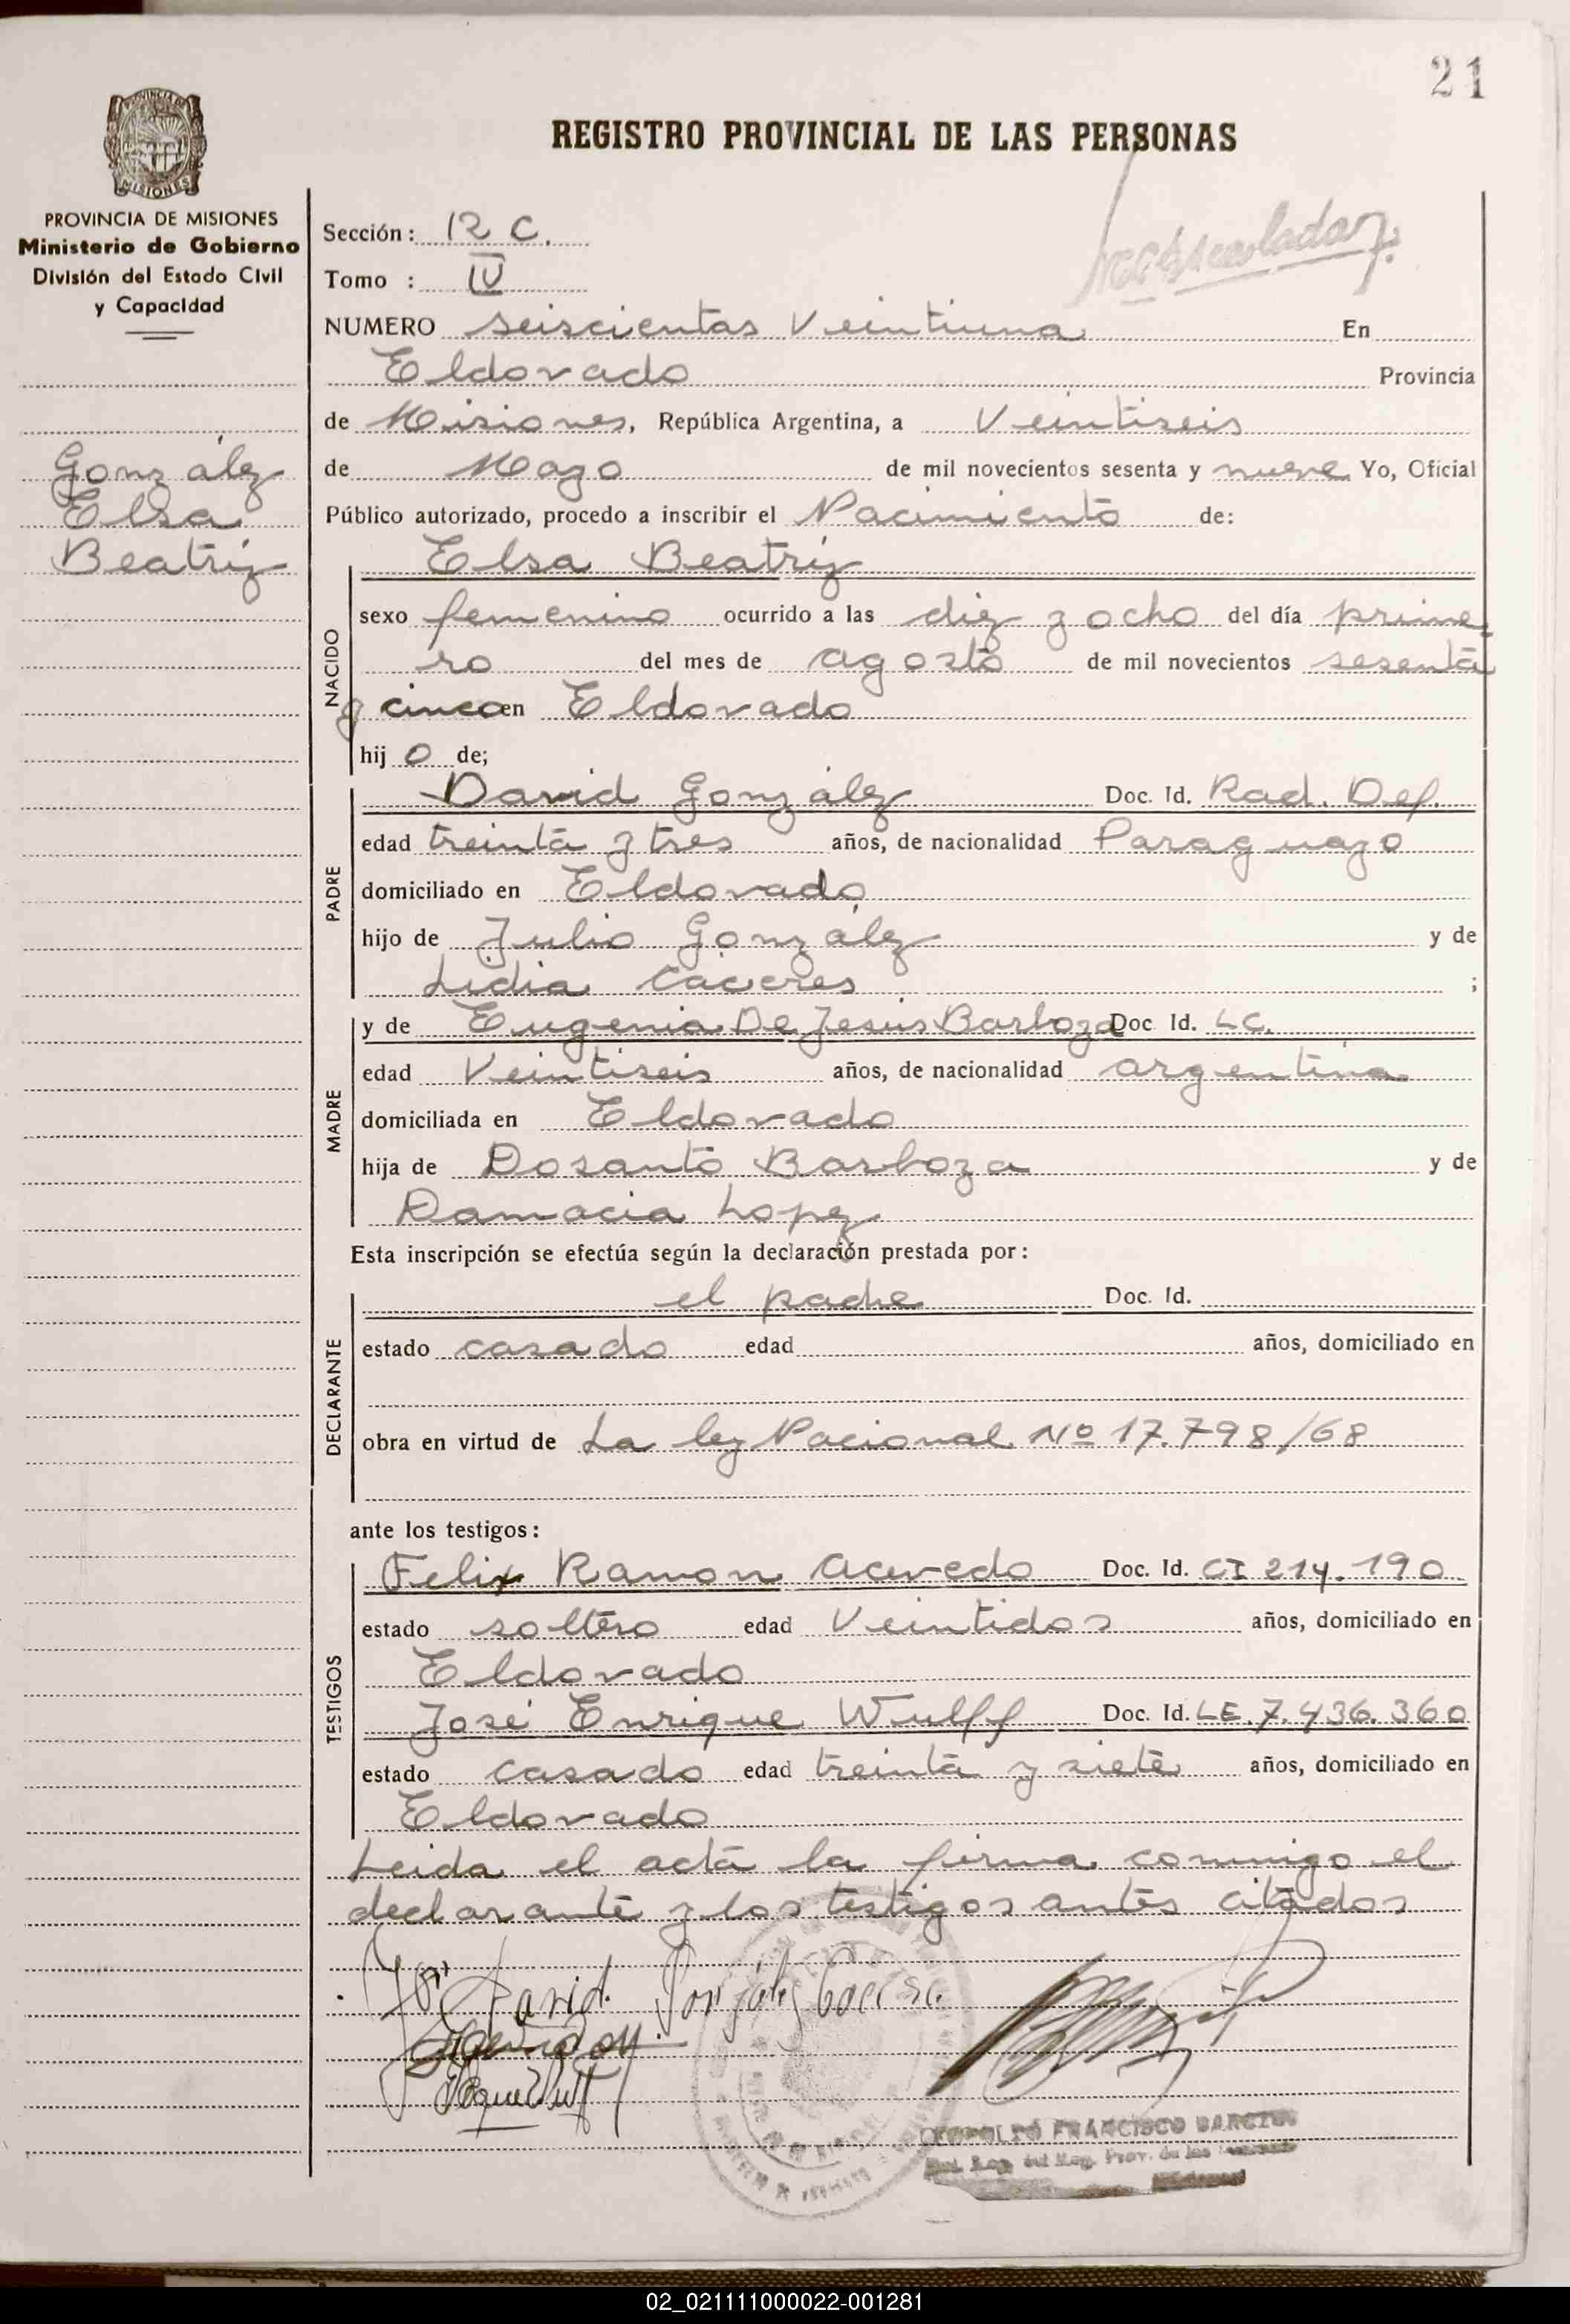 21
REGISTRO PROVINCIAL DE LAS PERSONAS
PROVINCIA DE
MISIONES
PROVINCIA DE MISIONES
Ministerio de Gobierno
División del Estado Civil
y Capacidad
González
Elsa
Beatriz
Sección: R C.
Tomo : IV
NUMERO seiscientas Veintiuna En
Eldorado Provincia
de Misiones, República Argentina, a Veintiseis
de Mayo de mil novecientos sesenta y nueve Yo, Oficial
Público autorizado, procedo a inscribir el Nacimiento de:
Elsa Beatriz
NACIDO
sexo femenino ocurrido a las diez y ocho del día prime-
ro del mes de agosto de mil novecientos sesenta
y cinco en Eldorado
hij o de;
PADRE
David González Doc. Id. Rad. Def.
edad treinta y tres años, de nacionalidad Paraguayo
domiciliado en Eldorado
hijo de Julio González y de
Lidia Cáceres ;
MADRE
y de Eugenia De Jesús Barboza Doc Id. LC.
edad Veintiseis años, de nacionalidad argentina
domiciliada en Eldorado
hija de Dosanto Barboza y de
Damacia Lopez
Esta inscripción se efectúa según la declaración prestada por:
DECLARANTE
el padre Doc. Id.
estado casado edad años, domiciliado en
obra en virtud de La ley Nacional Nº 17.798/68
ante los testigos:
TESTIGOS
Felix Ramon Acevedo Doc. Id. CI 214.190
estado soltero edad Veintidos años, domiciliado en
Eldorado
José Enrique Wulff Doc. Id. LE. 7.436.360
estado casado edad treinta y siete años, domiciliado en
Eldorado
Leida el acta la firma conmigo el
declarante y los testigos antes citados
David González
FRANCISCO
02_021111000022-001281